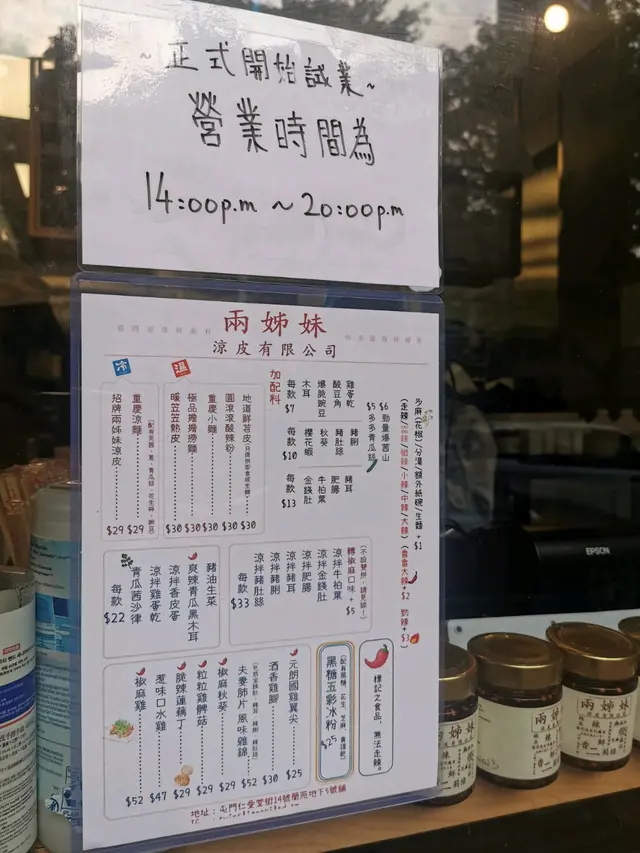 ~正式開始試業~
營業時間為
14:00p.m ~ 20:00p.m
兩姊妹
涼皮有限公司
冷
招牌兩姊妹涼皮 $29
重慶涼麵 $29
溫
暖笠笠熱皮 $30
極品擔擔撈麵 $30
重慶小麵 $30
圓滾滾酸辣粉 $30
地道鮮苕皮 $30
加配料
每款 $7
木耳
爆脆豌豆
酸豆角
雞蛋乾
每款 $10
櫻花蝦
秋葵
豬肚絲
豬脷
每款 $13
金錢肚
牛柏葉
肥腸
豬耳
$5 多多青瓜絲
$6 勁量爆茜山
少麻(花椒)/分湯/額外紙碗/生麵 +$1
(走辣/微辣/小辣/中辣/大辣)
(香香大辣 +$2
勁辣 +$3
每款 $22
青瓜茜沙律
涼拌雞蛋乾
涼拌香皮蛋
爽辣青瓜黑木耳
豬油生菜
每款 $33
涼拌豬肚絲
涼拌豬脷
涼拌豬耳
涼拌肥腸
涼拌金錢肚
涼拌牛柏葉
轉椒麻口味 +$5
椒麻雞 $52
惹味口水雞 $47
脆辣蓮藕丁 $29
粒粒雞髀菇 $29
椒麻秋葵 $29
夫妻肺片風味雜錦 $52
酒香雞腳 $30
元朗國雞翼尖 $25
黑糖五彩冰粉 $25
標記之食品,無法走辣。
地址:屯門仁愛堂街14號蘭苑地下5號舖
EPSON
兩姊妹
兩姊妹
兩姊妹